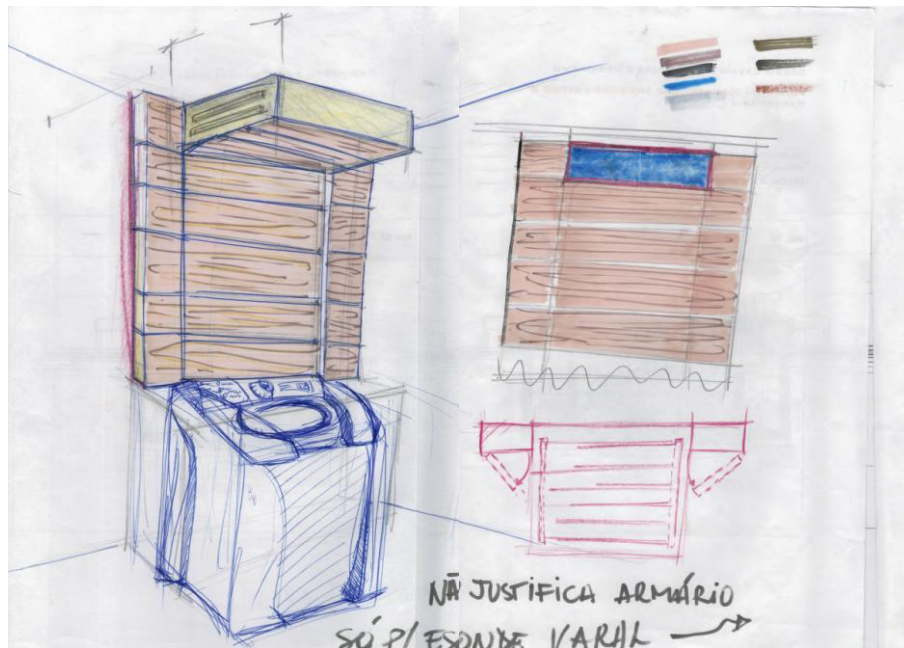 NÃ JUSTIFICA ARMÁRIO
SÓ P/ ESONDE VARAL